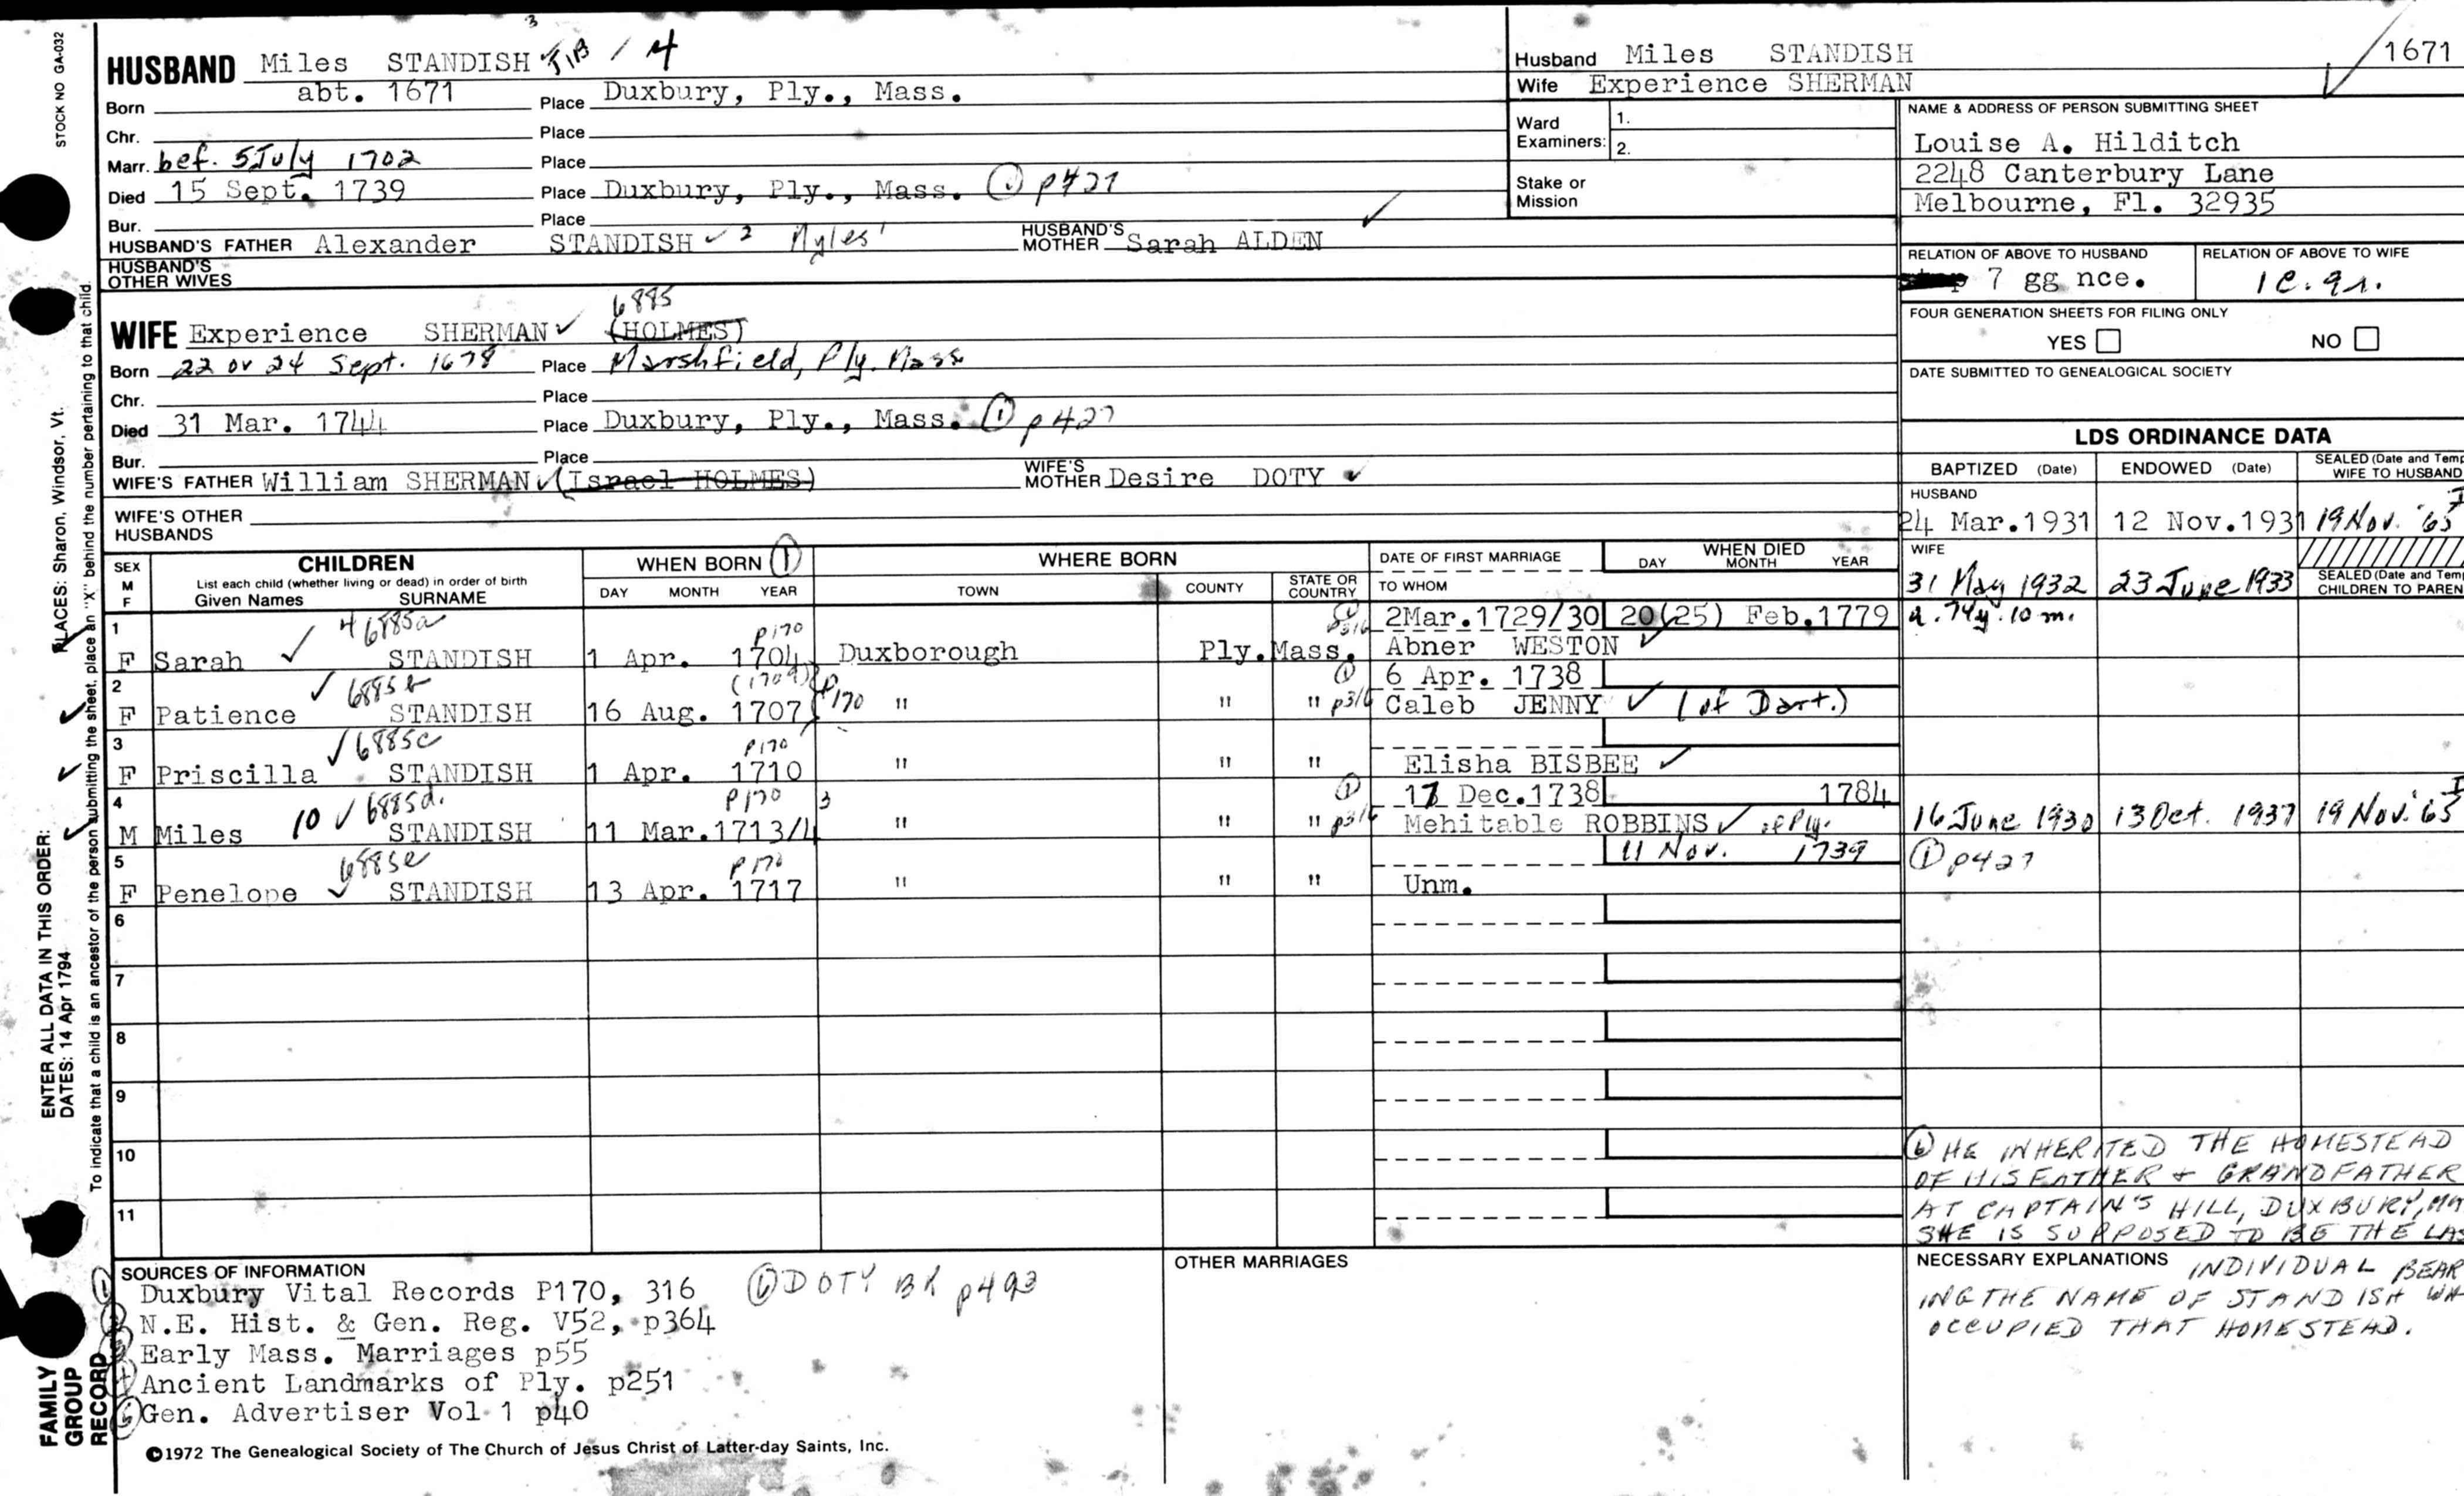 STOCK NO GA-032
HUSBAND Miles STANDISH / 4
3
Born abt. 1671 Place Duxbury, Ply., Mass.
Chr. Place
Marr. bef. 5 July 1702 Place
Died 15 Sept. 1739 Place Duxbury, Ply., Mass. p427
Bur. Place
HUSBAND'S FATHER Alexander STANDISH ✓ 2 Myles' HUSBAND'S MOTHER Sarah ALDEN
HUSBAND'S OTHER WIVES
6885
WIFE Experience SHERMAN ✓ (HOLMES)
Born 22 or 24 Sept. 1678 Place Marshfield, Ply. Mass
Chr. Place
Died 31 Mar. 1744 Place Duxbury, Ply., Mass. ① p427
Bur. Place
WIFE'S FATHER William SHERMAN ✓ (Israel HOLMES) WIFE'S MOTHER Desire DOTY ✓
WIFE'S OTHER HUSBANDS
Husband Miles STANDISH 1671
Wife Experience SHERMAN
Ward Examiners: 1.
2.
Stake or Mission
NAME & ADDRESS OF PERSON SUBMITTING SHEET
Louise A. Hilditch
2248 Canterbury Lane
Melbourne, Fl. 32935
RELATION OF ABOVE TO HUSBAND RELATION OF ABOVE TO WIFE
7 gg nce. 1c.9r.
FOUR GENERATION SHEETS FOR FILING ONLY
YES NO
DATE SUBMITTED TO GENEALOGICAL SOCIETY
LDS ORDINANCE DATA
BAPTIZED (Date) ENDOWED (Date) SEALED (Date and Temp
WIFE TO HUSBAND
HUSBAND
24 Mar.1931 12 Nov.1931 19 Nov. '65
WIFE
31 May 1932 23 June 1933 SEALED (Date and Temp
CHILDREN TO PAREN
SEX M F CHILDREN WHEN BORN ① WHERE BORN DATE OF FIRST MARRIAGE WHEN DIED
List each child (whether living or dead) in order of birth
Given Names SURNAME DAY MONTH YEAR TOWN COUNTY STATE OR COUNTRY TO WHOM DAY MONTH YEAR
1 4 6885a P170 p316 2Mar.1729/30 20(25) Feb.1779 a. 74y. 10 m.
F Sarah ✓ STANDISH 1 Apr. 1704 Duxborough Ply. Mass. Abner WESTON ✓
2 ✓ 6885b (1709) P170 ① 6 Apr. 1738
F Patience STANDISH 16 Aug. 1707 " " " p316 Caleb JENNY ✓ (of Dart.)
3 ✓ 6885c P170
F Priscilla STANDISH 1 Apr. 1710 " " " Elisha BISBEE ✓
4 10 ✓ 6885d. P170 3 ① 17 Dec.1738 1784
M Miles STANDISH 11 Mar.1713/4 " " " p316 Mehitable ROBBINS ✓ of Ply. 16 June 1930 13 Oct. 1937 19 Nov. '65
5 6885e P170 11 Nov. 1739 ① p427
F Penelope ✓ STANDISH 13 Apr. 1717 " " " Unm.
6
7
8
9
10
11
⑥ HE INHERITED THE HOMESTEAD
OF HIS FATHER + GRANDFATHER
AT CAPTAIN'S HILL, DUXBURY, MA
SHE IS SUPPOSED TO BE THE LAS
NECESSARY EXPLANATIONS INDIVIDUAL BEAR
ING THE NAME OF STANDISH WH
OCCUPIED THAT HOMESTEAD.
SOURCES OF INFORMATION OTHER MARRIAGES
① Duxbury Vital Records P170, 316 ⑥ DOTY BK p493
N.E. Hist. & Gen. Reg. V52, p364
Early Mass. Marriages p55
Ancient Landmarks of Ply. p251
Gen. Advertiser Vol 1 p40
©1972 The Genealogical Society of The Church of Jesus Christ of Latter-day Saints, Inc.
FAMILY GROUP RECORD
ENTER ALL DATA IN THIS ORDER:
DATES: 14 Apr 1794
PLACES: Sharon, Windsor, Vt.
To indicate that a child is an ancestor of the person submitting the sheet, place an "X" behind the number pertaining to that child.